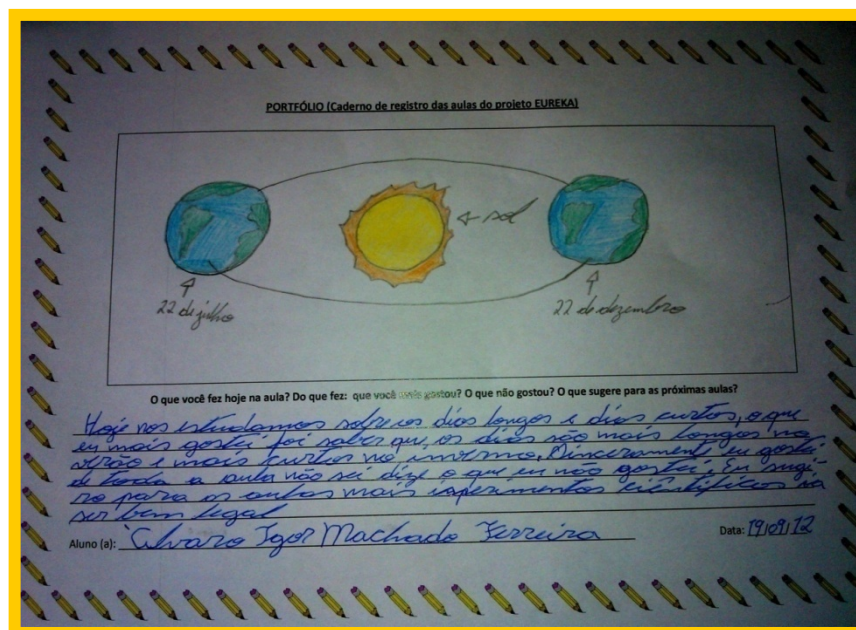 PORTFÓLIO (Caderno de registro das aulas do projeto EUREKA)
sol
22 de julho
22 de dezembro
O que você fez hoje na aula? Do que fez: que você mais gostou? O que não gostou? O que sugere para as próximas aulas?
Hoje nos estudamos sobre os dias longos e dias curtos, o que
eu mais gostei foi saber que, os dias são mais longos no
verão e mais curtos no inverno. Sinceramente eu gostei
de toda a aula não sei dize o que eu não gostei. Eu sugi
ro para as aulas mais isperimentos ciêntificos ia
ser bem legal
Aluno (a): Alvaro Igor Machado Ferreira
Data: 19/09/12